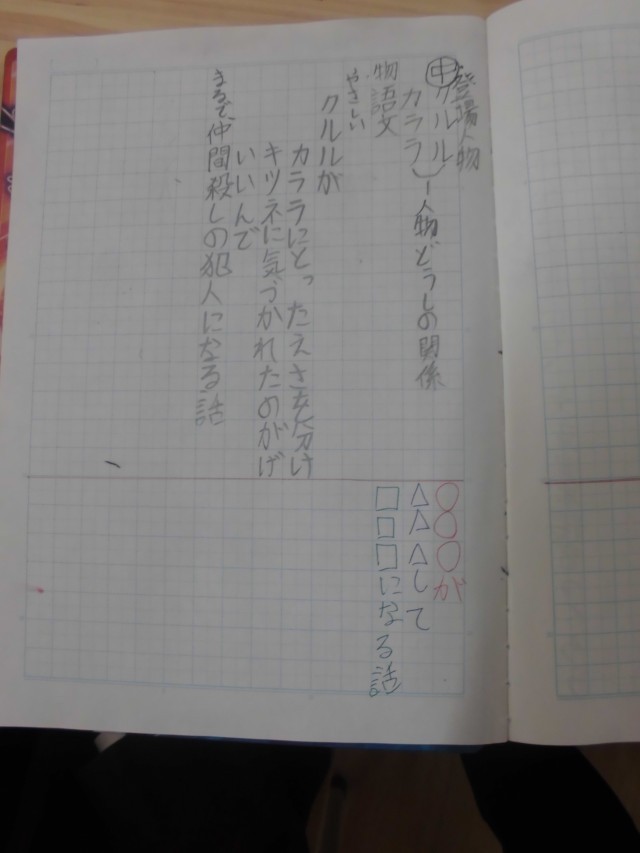 登場人物
中 クルル
カララ 〉― 人物どうしの関係
物語文
やさしい
クルルが
カララにとったえさを分け
キツネに気づかれたのがげ
いいんで
まるで、仲間殺しの犯人になる話
〇〇〇が
△△△して
□□□になる話